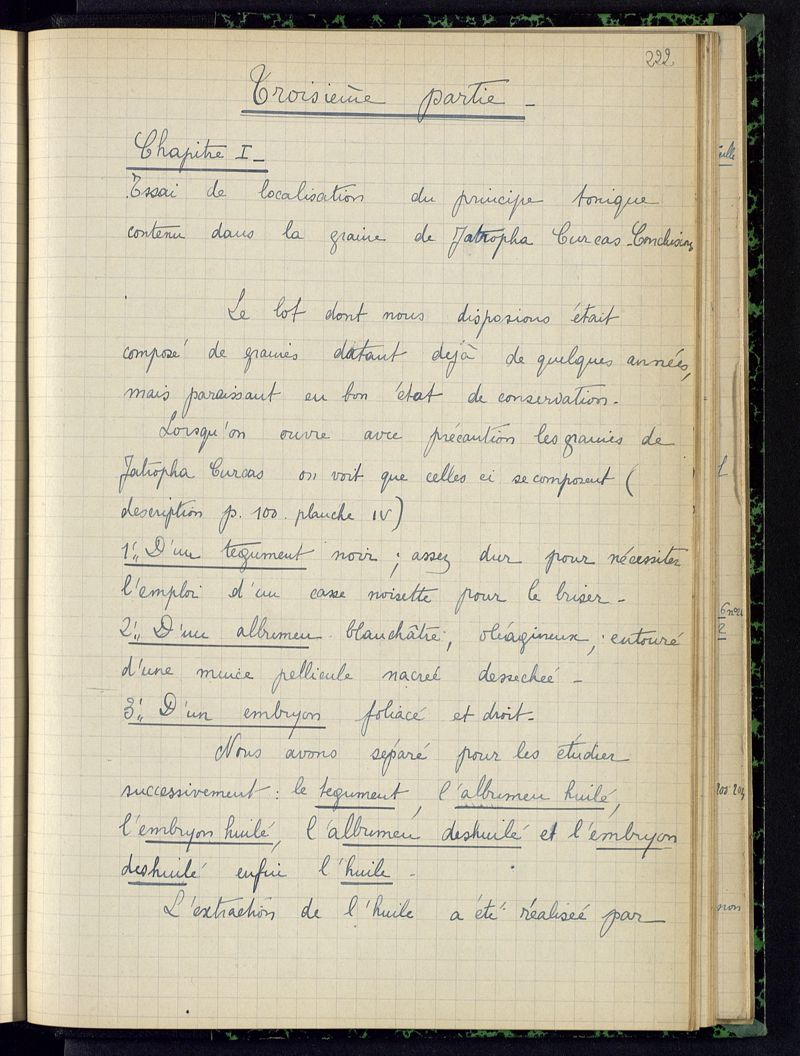 222
Troisième partie -
Chapitre I -
Essai de localisation du principe tonique
contenu dans la graine de Jatropha Curcas - Conclusions
Le lot dont nous disposions était
composé de graines datant dejà de quelques années,
mais paraissant en bon état de conservation -
Lorsqu'on ouvre avec précaution les graines de
Jatropha Curcas on voit que celles ci se composent (
description p. 100. planche IV)
1°" D'un tegument noir ; assez dur pour nécessiter
l'emploi d'un casse noisette pour le briser -
2°" D'un albumen blanchâtre, oléagineux, entouré
d'une mince pellicule nacreé dessecheé -
3°" D'un embryon foliacé et droit -
Nous avons séparé pour les étudier
successivement : le tegument, l'albumen huilé,
l'embryon huilé, l'albumen deshuilé et l'embryon
deshuilé enfin l'huile -
L'extraction de l'huile a été réaliseé par